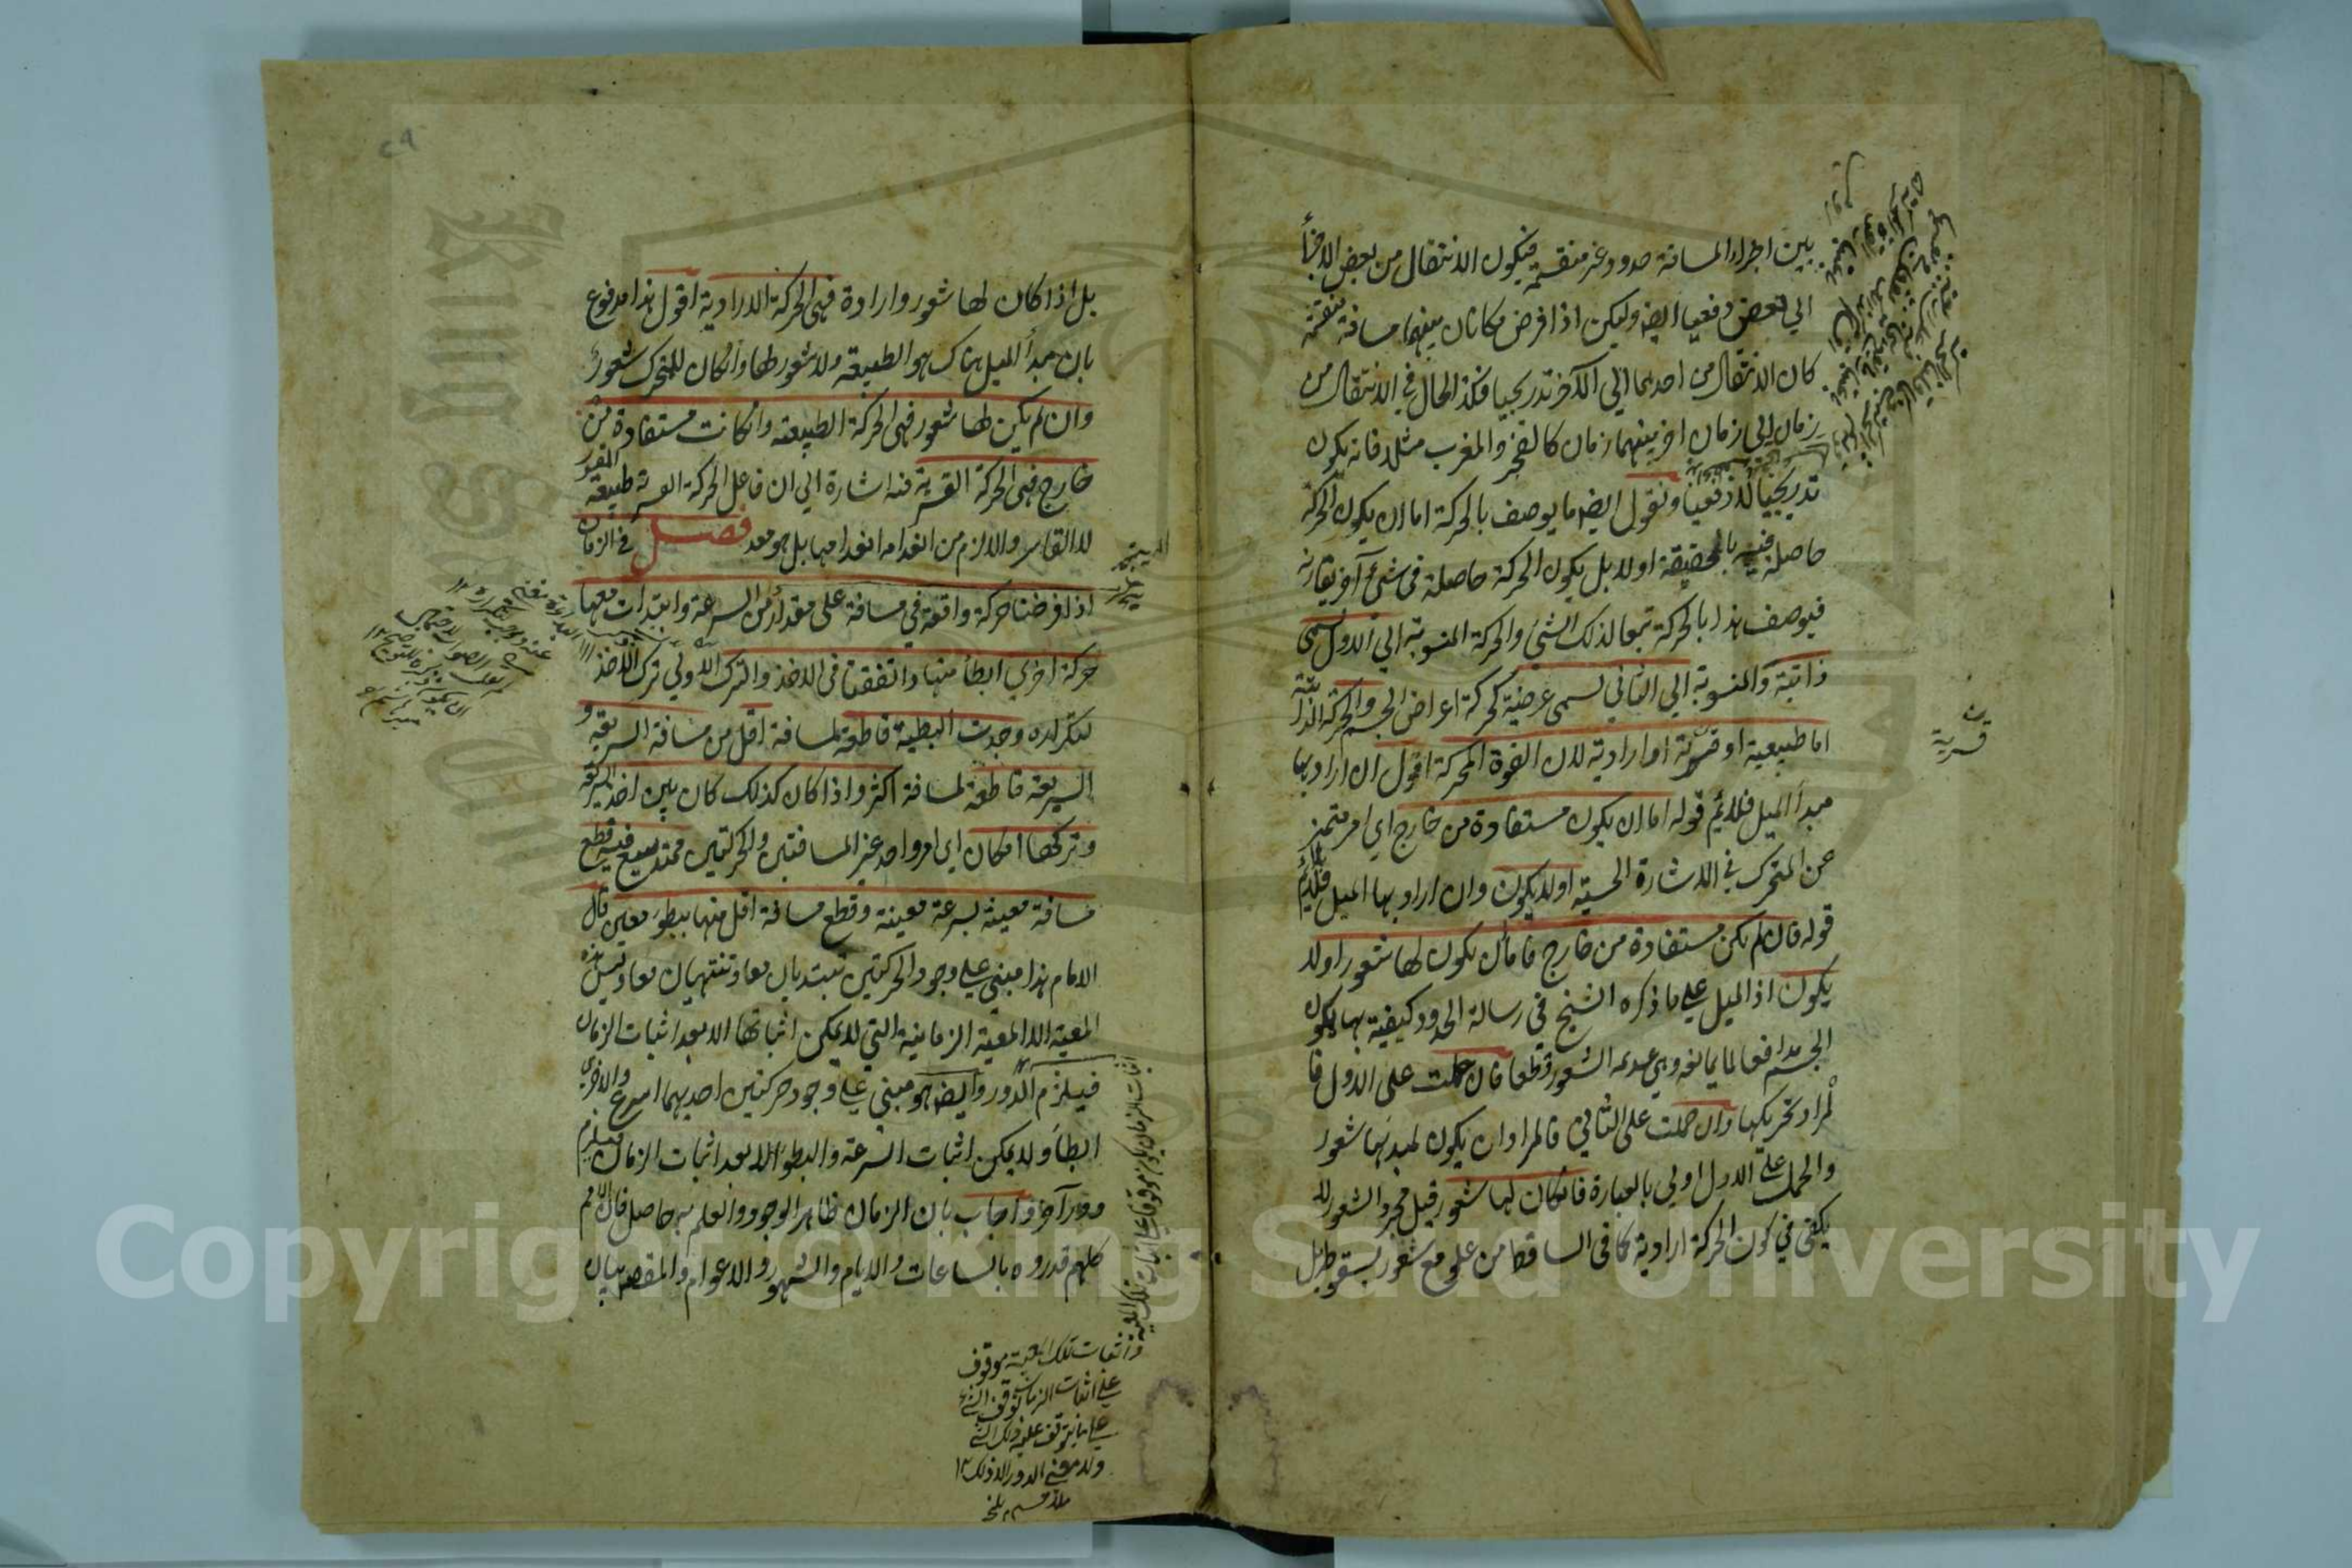 بين اجزاء المسافة حدود غير منقسمة فيكون الانتقال من بعض الاجزأ
الي بعض دفعيا ايض وليكن اذا فرض مكانان بينهما مسافة منقسمة
كان الانتقال من احدهما الي الآخر تدريجيا فكذا الحال في الانتقال من
زمان الي زمان اخر بينهما زمان كالفجر والمغرب مثلا فانه يكون
تدريجيا لا دفعيا ونقول ايض ما يوصف بالحركة اما ان يكون الحركة
حاصلة فيه بالحقيقة اولا بل يكون الحركة حاصلة في شئ آخر يقارنه
فيوصف هذا بالحركة تبعا لذلك الشئ والحركة المنسوبة الي الاول تسمى
ذاتية والمنسوبة الي الثاني تسمى عرضية كحركة اعراض الجسم والحركة الذاتية
اما طبيعية او قسرية او ارادية لان القوة المحركة اقول ان اراد بها
مبدأ الميل فلائم قوله اما ان يكون مستفادة من خارج اي امر متميز
عن المتحرك في الاشارة الحسية اولا يكون وان اراد بها الميل فلا يلائم
قوله فان لم يكن مستفادة من خارج فاما ان يكون لها شعور اولا
يكون اذ الميل علي ما ذكره الشيخ في رسالة الحدود كيفية بها يكون
الجسم مدافعا لما يمانعه وهي عديمة الشعور قطعا فان حملت على الاول فا
لمراد تحريكها وان حملت على الثاني فالمراد ان يكون لمبدئها شعور
والحمل علي الاول اولي بالعبارة فان كان لها شعور قيل مجرد الشعور لا
يكفي في كون الحركة ارادية كما في الساقط من علو مع شعور بسقوطه بل
قسرية
بل اذا كان لها شعور وارادة فهي الحركة الارادية اقول هذا مدفوع
بان مبدأ الميل هناك هو الطبيعة ولا شعور لها وان كان للمتحرك شعور
وان لم يكن لها شعور فهي الحركة الطبيعة وان كانت مستفادة من
خارج فهي الحركة القسرية فيه اشارة الي ان فاعل الحركة القسرية طبيعة المقسور
لا القاسر والا لزم من انعدامه انعدامها بل هو معد فصل في الزمان
اذا فرضنا حركة واقعة في مسافة على مقدار من السرعة وابتدأت معها
حركة اخري ابطأ منها واتفقتا في الاخذ والترك الاولي ترك الاخذ
لتكراره وجدت البطيئة قاطعة لمسافة اقل من مسافة السريعة و
السريعة قاطعة لمسافة اكثر واذا كان كذلك كان بين اخذ السريعة
وتركها امكان اي امر واحد غير المسافتين والحركتين ممتد يسع فيه قطع
مسافة معينة بسرعة معينة وقطع مسافة اقل منها ببطوء معين قال
الامام هذا مبني علي وجود الحركتين تبتديان معا وتنتهيان معا وليس هذه
المعية الا المعية الزمانية التي لا يمكن اثباتها الا بعد اثبات الزمان
فيلزم الدور وايض هو مبني علي وجود حركتين احديهما اسرع والاخري
ابطأ ولا يمكن اثبات السرعة والبطوء الا بعد اثبات الزمان فيلزم
دور آخر واجاب بان الزمان ظاهر الوجود والعلم به حاصل فان الامم
كلهم قدروه بالساعات والايام والشهور والاعوام والمقصود بيان
اثبات الزمان يكون موقوفا علي اثبات تلك المعية
واثبات تلك المعية موقوف
علي اثبات الزمان توقف الشئ
علي ما يتوقف عليه ذلك الشئ
ولا معني الدور الا ذلك ١٢
Copyright © King Saud University